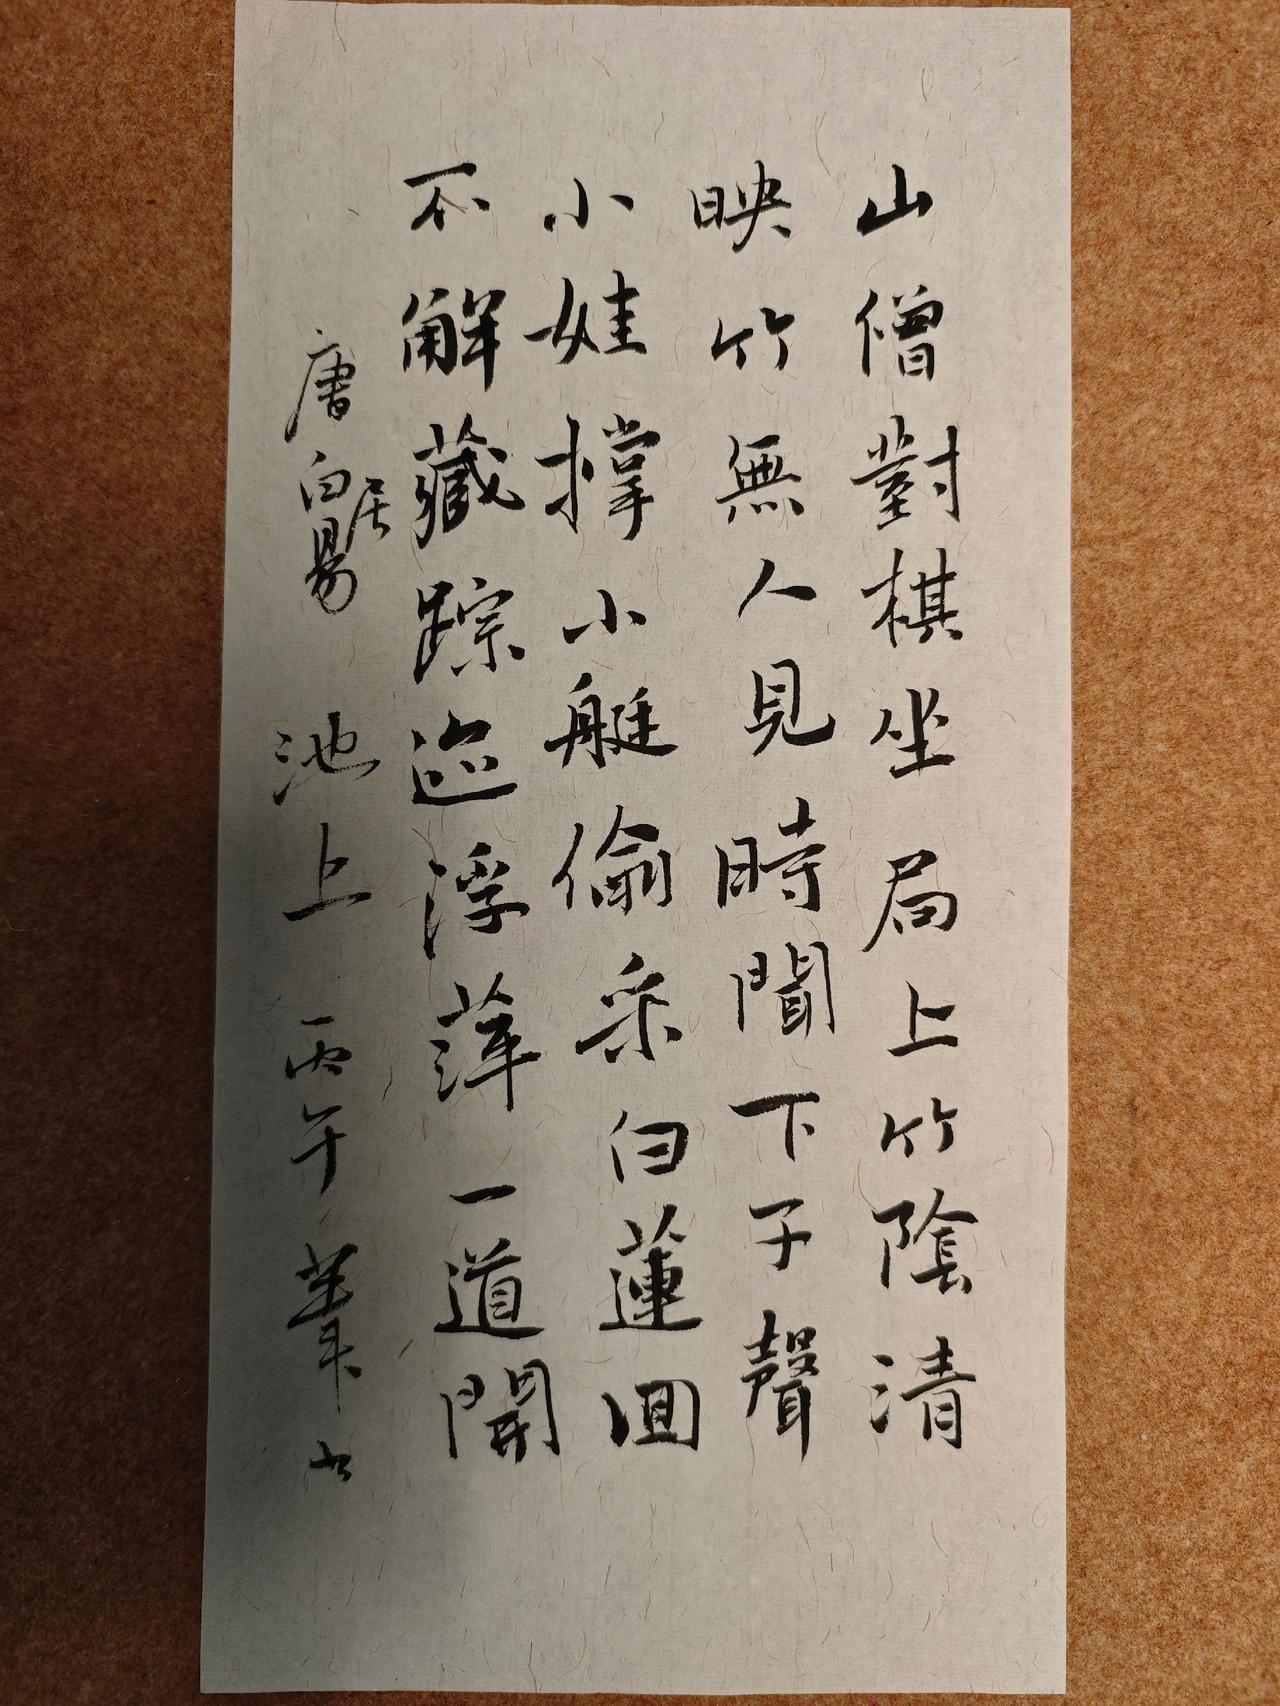 山僧對棋坐局上竹陰清
映竹無人見時聞下子聲
小娃撑小艇偷采白蓮迴
不解藏踪迹浮萍一道開
唐白居易 池上 丙午